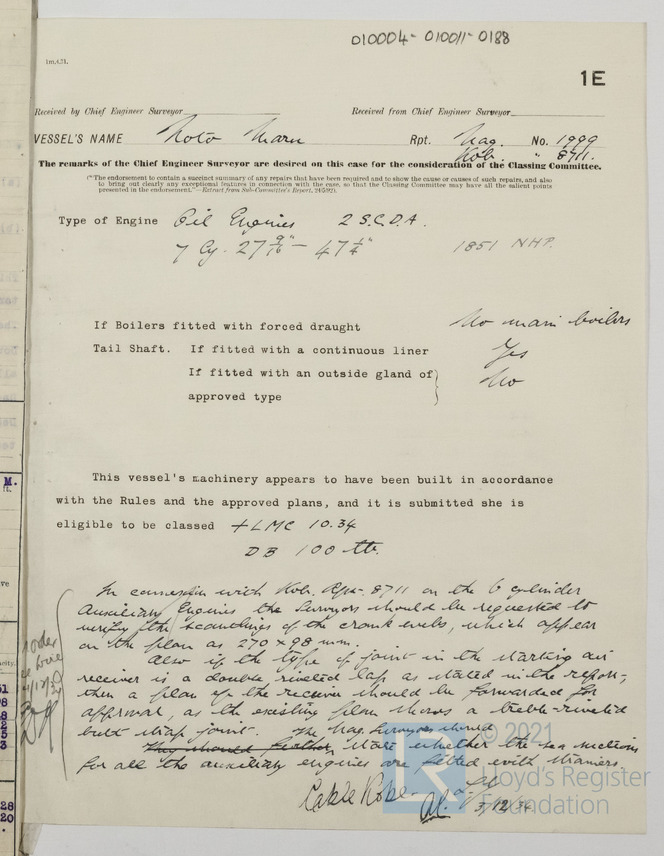 010004-010011-0188
1m.4.31.
1E
Received by Chief Engineer Surveyor
Received from Chief Engineer Surveyor
VESSEL'S NAME Noto Maru Rpt. Nag. No. 1999
Kob. " 8711.
The remarks of the Chief Engineer Surveyor are desired on this case for the consideration of the Classing Committee.
("The endorsement to contain a succinct summary of any repairs that have been required and to show the cause or causes of such repairs, and also
to bring out clearly any exceptional features in connection with the case, so that the Classing Committee may have all the salient points
presented in the endorsement."—Extract from Sub-Committee's Report, 24/5/92).
Type of Engine Oil Engines 2 S.C.D.A.
7 Cy. 27 9/16" - 47 1/4" 1851 NHP.
If Boilers fitted with forced draught No main boilers
Tail Shaft. If fitted with a continuous liner Yes
If fitted with an outside gland of No
approved type
This vessel's machinery appears to have been built in accordance
with the Rules and the approved plans, and it is submitted she is
eligible to be classed +LMC 10.34
DB 100 lb.
In connexion with Kob. Rpt. 8711 on the 6 cylinder
Auxiliary Engines the Surveyors should be requested to
verify the scantlings of the crank webs, which appear
on the plan as 270 × 98 mm.
Also if the type of joint in the starting air
receiver is a double riveted lap as stated in the report,
then a plan of the receiver should be forwarded for
approval, as the existing plan shows a treble-riveted
butt strap joint. The Nag. Surveyors should
They should further state whether the sea suctions
for all the auxiliary engines are fitted with strainers.
Cable Kobe.
3/12/34
© 2021
Lloyd's Register
Foundation